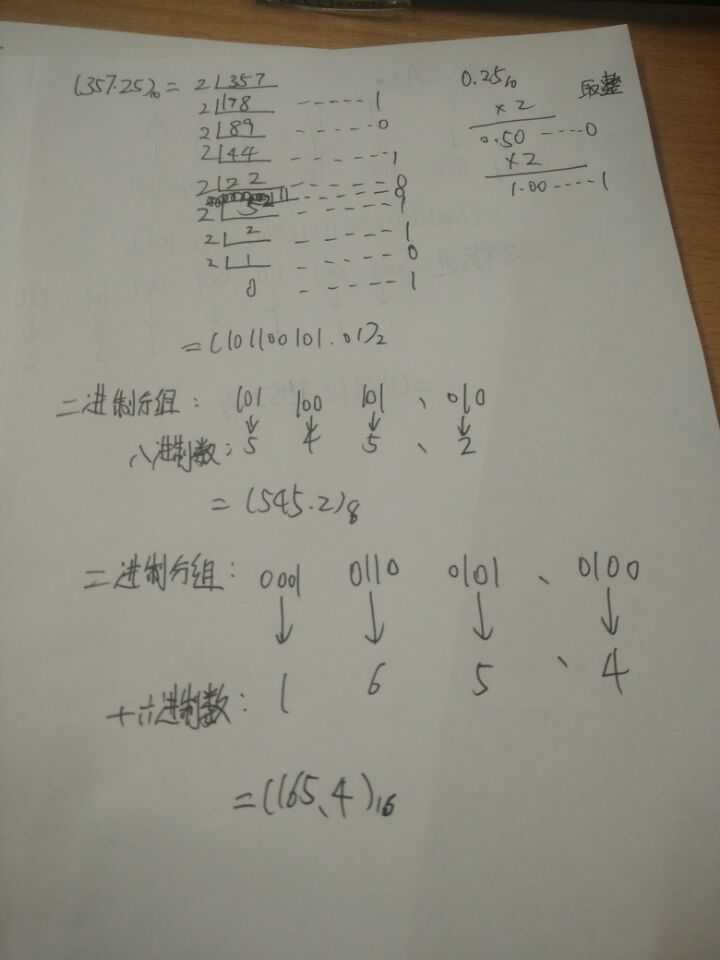 (357.25)₁₀ = 2 357
2 178 ----- 1
2 89 ----- 0
2 44 ----- 1
2 22 ----- 0
2 11 ----- 0
2 5 ----- 1
2 2 ----- 1
2 1 ----- 0
0 ----- 1
0.25₁₀ 取整
×2
0.50 ---- 0
×2
1.00 ---- 1
= (101100101.01)₂
二进制分组: 101 100 101 、 010
↓ ↓ ↓ ↓
八进制数: 5 4 5 、 2
= (545.2)₈
二进制分组: 0001 0110 0101 、 0100
↓ ↓ ↓ ↓
十六进制数: 1 6 5 、 4
= (165、4)₁₆